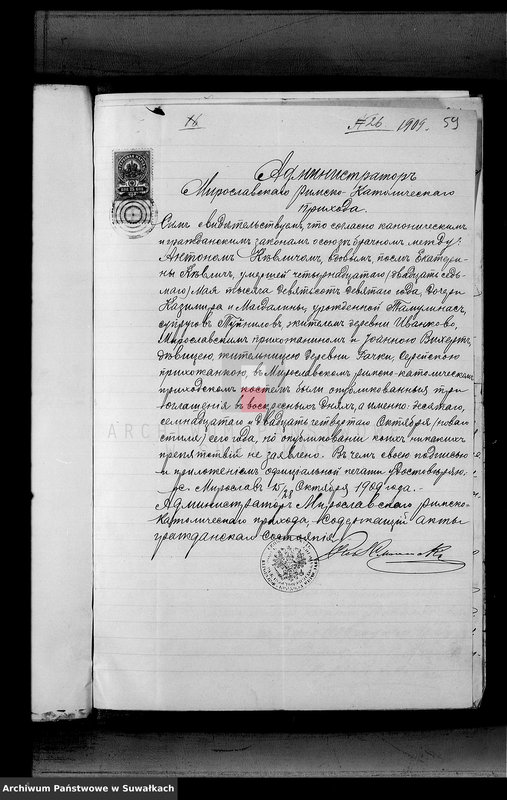 № 26 1909. 59
Администраторъ
Мирославскаго Римско-Католическаго
Прихода.
Симъ свидѣтельствуемъ, что согласно каноническимъ
и гражданскимъ законамъ о союзѣ брачномъ между:
Антономъ вдовымъ, послѣ Екатери-
ны умершей четырнадцатаго (двадцать седь-
маго) Мая тысяча девятьсотъ девятаго года, дочери
Казимира и Магдалины, урожденной
супруговъ жителемъ деревни Иванково,
Мирославскимъ прихожаниномъ и Іоанною Вихертъ,
дѣвицею, жительницею деревни Качки, Серейскою
прихожанкою, въ Мирославскомъ римско-католическомъ
приходскомъ костелѣ были опубликованныя три
оглашенія въ воскресныхъ дняхъ, а именно: десятаго,
семнадцатаго и двадцать четвертаго Октября (новаго
стиля) сего года, по опубликованіи коихъ никакихъ
препятствій не заявлено. Въ чемъ своею подписью
и приложеніемъ официальной печати удостовѣряю.
с. Мирославъ 15/28 Октября 1909 года.
Администраторъ Мирославскаго римско-
католическаго прихода, содержащій акты
гражданскаго состоянія
ARCHI
Archiwum Państwowe w Suwałkach